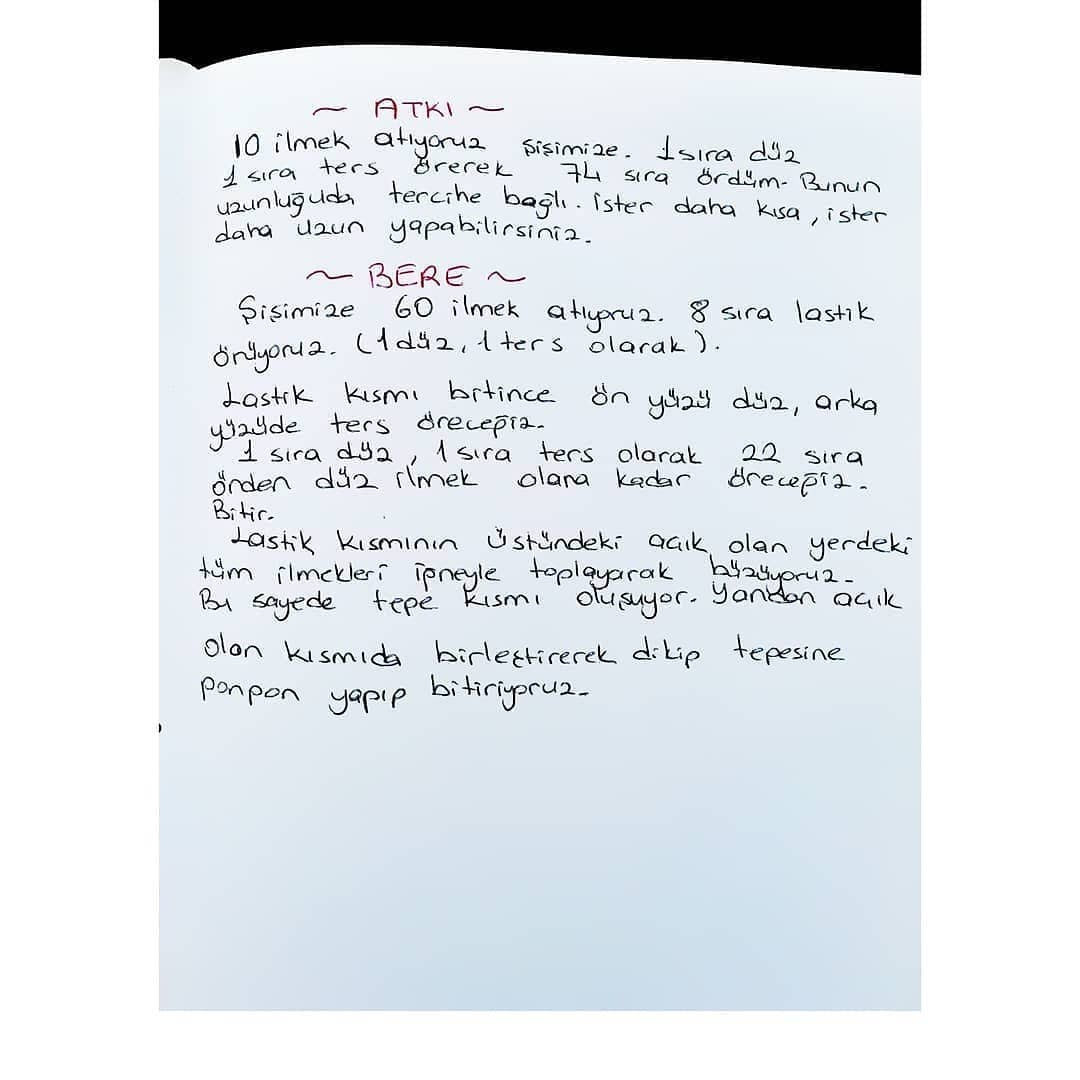 ~ ATKI ~
10 ilmek atıyoruz şişimize. 1 sıra düz
1 sıra ters örerek 74 sıra ördüm. Bunun
uzunluğuda tercihe bağlı. İster daha kısa, ister
daha uzun yapabilirsiniz.
~ BERE ~
Şişimize 60 ilmek atıyoruz. 8 sıra lastik
örüyoruz. (1 düz, 1 ters olarak).
Lastik kısmı bitince ön yüzü düz, arka
yüzüde ters öreceğiz.
1 sıra düz, 1 sıra ters olarak 22 sıra
önden düz ilmek olana kadar öreceğiz.
Bitir.
Lastik kısmının üstündeki açık olan yerdeki
tüm ilmekleri ipneyle toplayarak büzüyoruz.
Bu sayede tepe kısmı oluşuyor. Yandan açık
olan kısmıda birleştirerek dikip tepesine
ponpon yapıp bitiriyoruz.